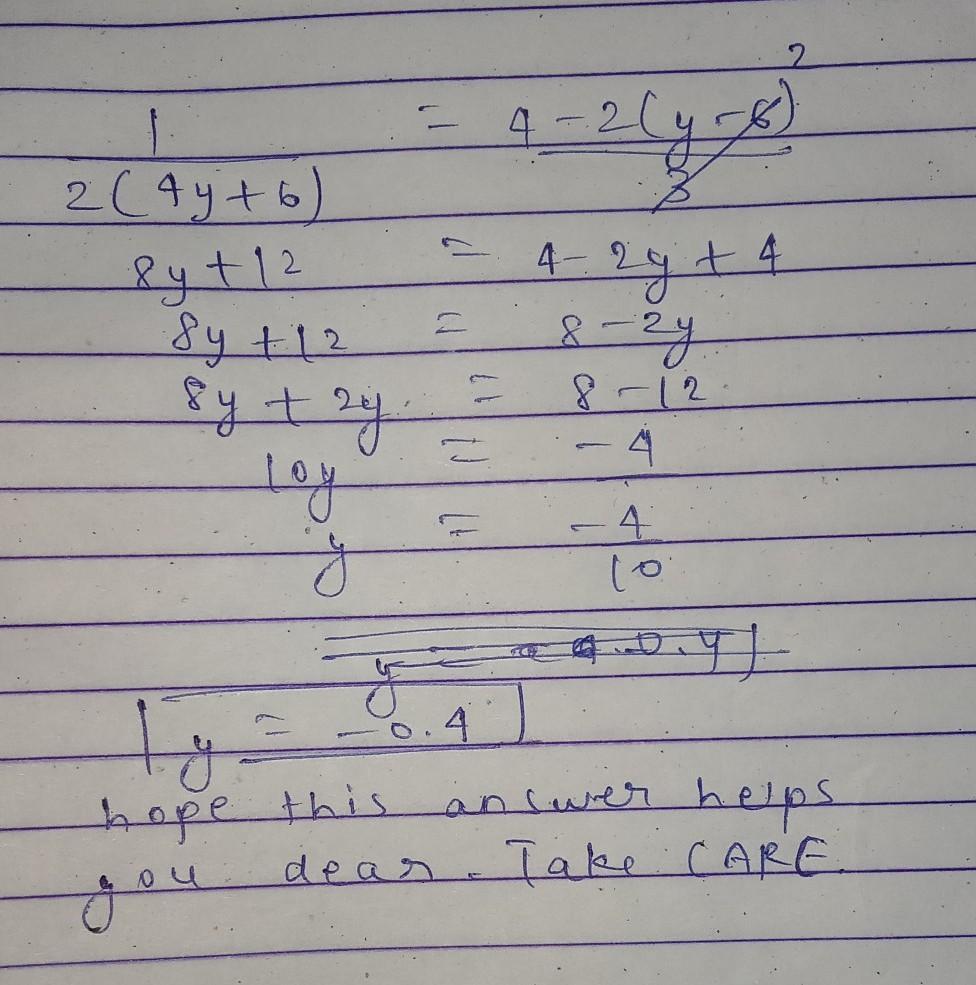 2
1 = 4 - 2(y - 6)
2(4y + 6) 3
8y + 12 = 4 - 2y + 4
8y + 12 = 8 - 2y
8y + 2y = 8 - 12
10y = -4
y = -4
10
y = -0.4
hope this answer helps
you dear. Take CARE.